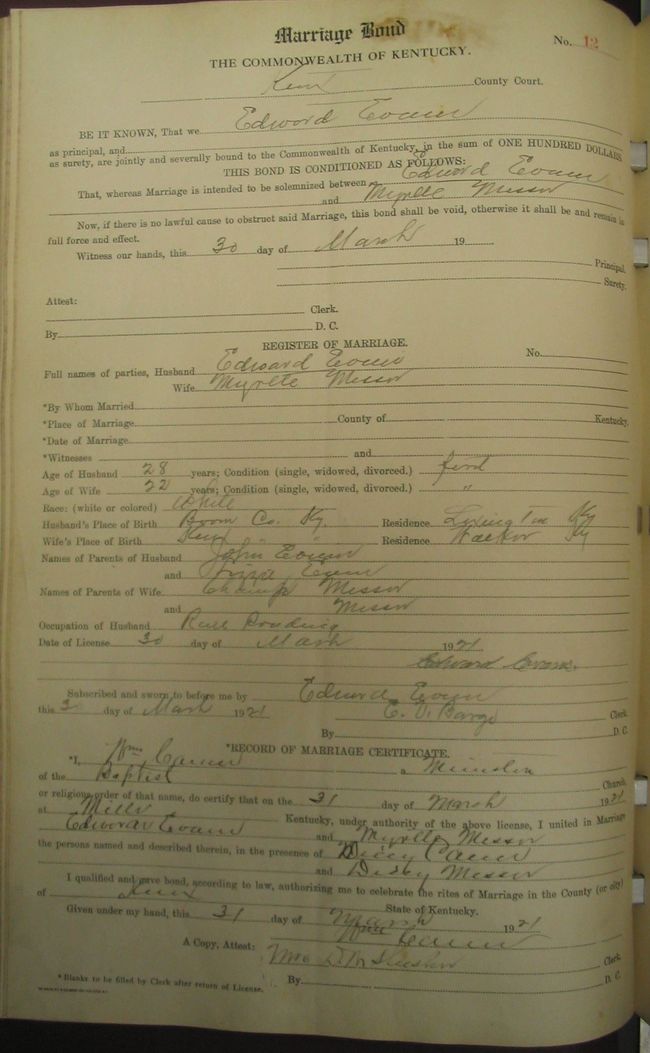 Marriage Bond
No. 12
THE COMMONWEALTH OF KENTUCKY.
Knox County Court.
BE IT KNOWN, That we Edward Evans
as principal, and
as surety, are jointly and severally bound to the Commonwealth of Kentucky, in the sum of ONE HUNDRED DOLLARS
THIS BOND IS CONDITIONED AS FOLLOWS:
That, whereas Marriage is intended to be solemnized between Edward Evans
and Myrtle Messer
Now, if there is no lawful cause to obstruct said Marriage, this bond shall be void, otherwise it shall be and remain in
full force and effect.
Witness our hands, this 30 day of March 19
Principal.
Surety.
Attest:
Clerk.
By D. C.
REGISTER OF MARRIAGE.
Full names of parties, Husband Edward Evans No.
Wife Myrtle Messer
*By Whom Married
*Place of Marriage County of Kentucky.
*Date of Marriage
*Witnesses and
Age of Husband 28 years; Condition (single, widowed, divorced.) first
Age of Wife 22 years; Condition (single, widowed, divorced.) "
Race: (white or colored) White
Husband's Place of Birth Boone Co. Ky. Residence Ky
Wife's Place of Birth Knox " " Residence Walker Ky
Names of Parents of Husband John Evans
and Lizzie Evans
Names of Parents of Wife Champ Messer
and Messer
Occupation of Husband Rail Roading
Date of License 30 day of March 1921
Edward Evans.
Subscribed and sworn to before me by Edward Evans
this 3 day of March 1921 Clerk
By D. C.
*RECORD OF MARRIAGE CERTIFICATE.
*I, Wm a Minister
of the Baptist Church,
or religious order of that name, do certify that on the 31 day of March 1921
at Mills Kentucky, under authority of the above license, I united in Marriage
Edward Evans and Myrtle Messer
the persons named and described therein, in the presence of Dicey
and Messer
I qualified and gave bond, according to law, authorizing me to celebrate the rites of Marriage in the County (or city)
of Knox State of Kentucky.
Given under my hand, this 31 day of March 1921
Wm
A Copy, Attest: Clerk.
By D. C.
*Blanks to be filled by Clerk after return of License.